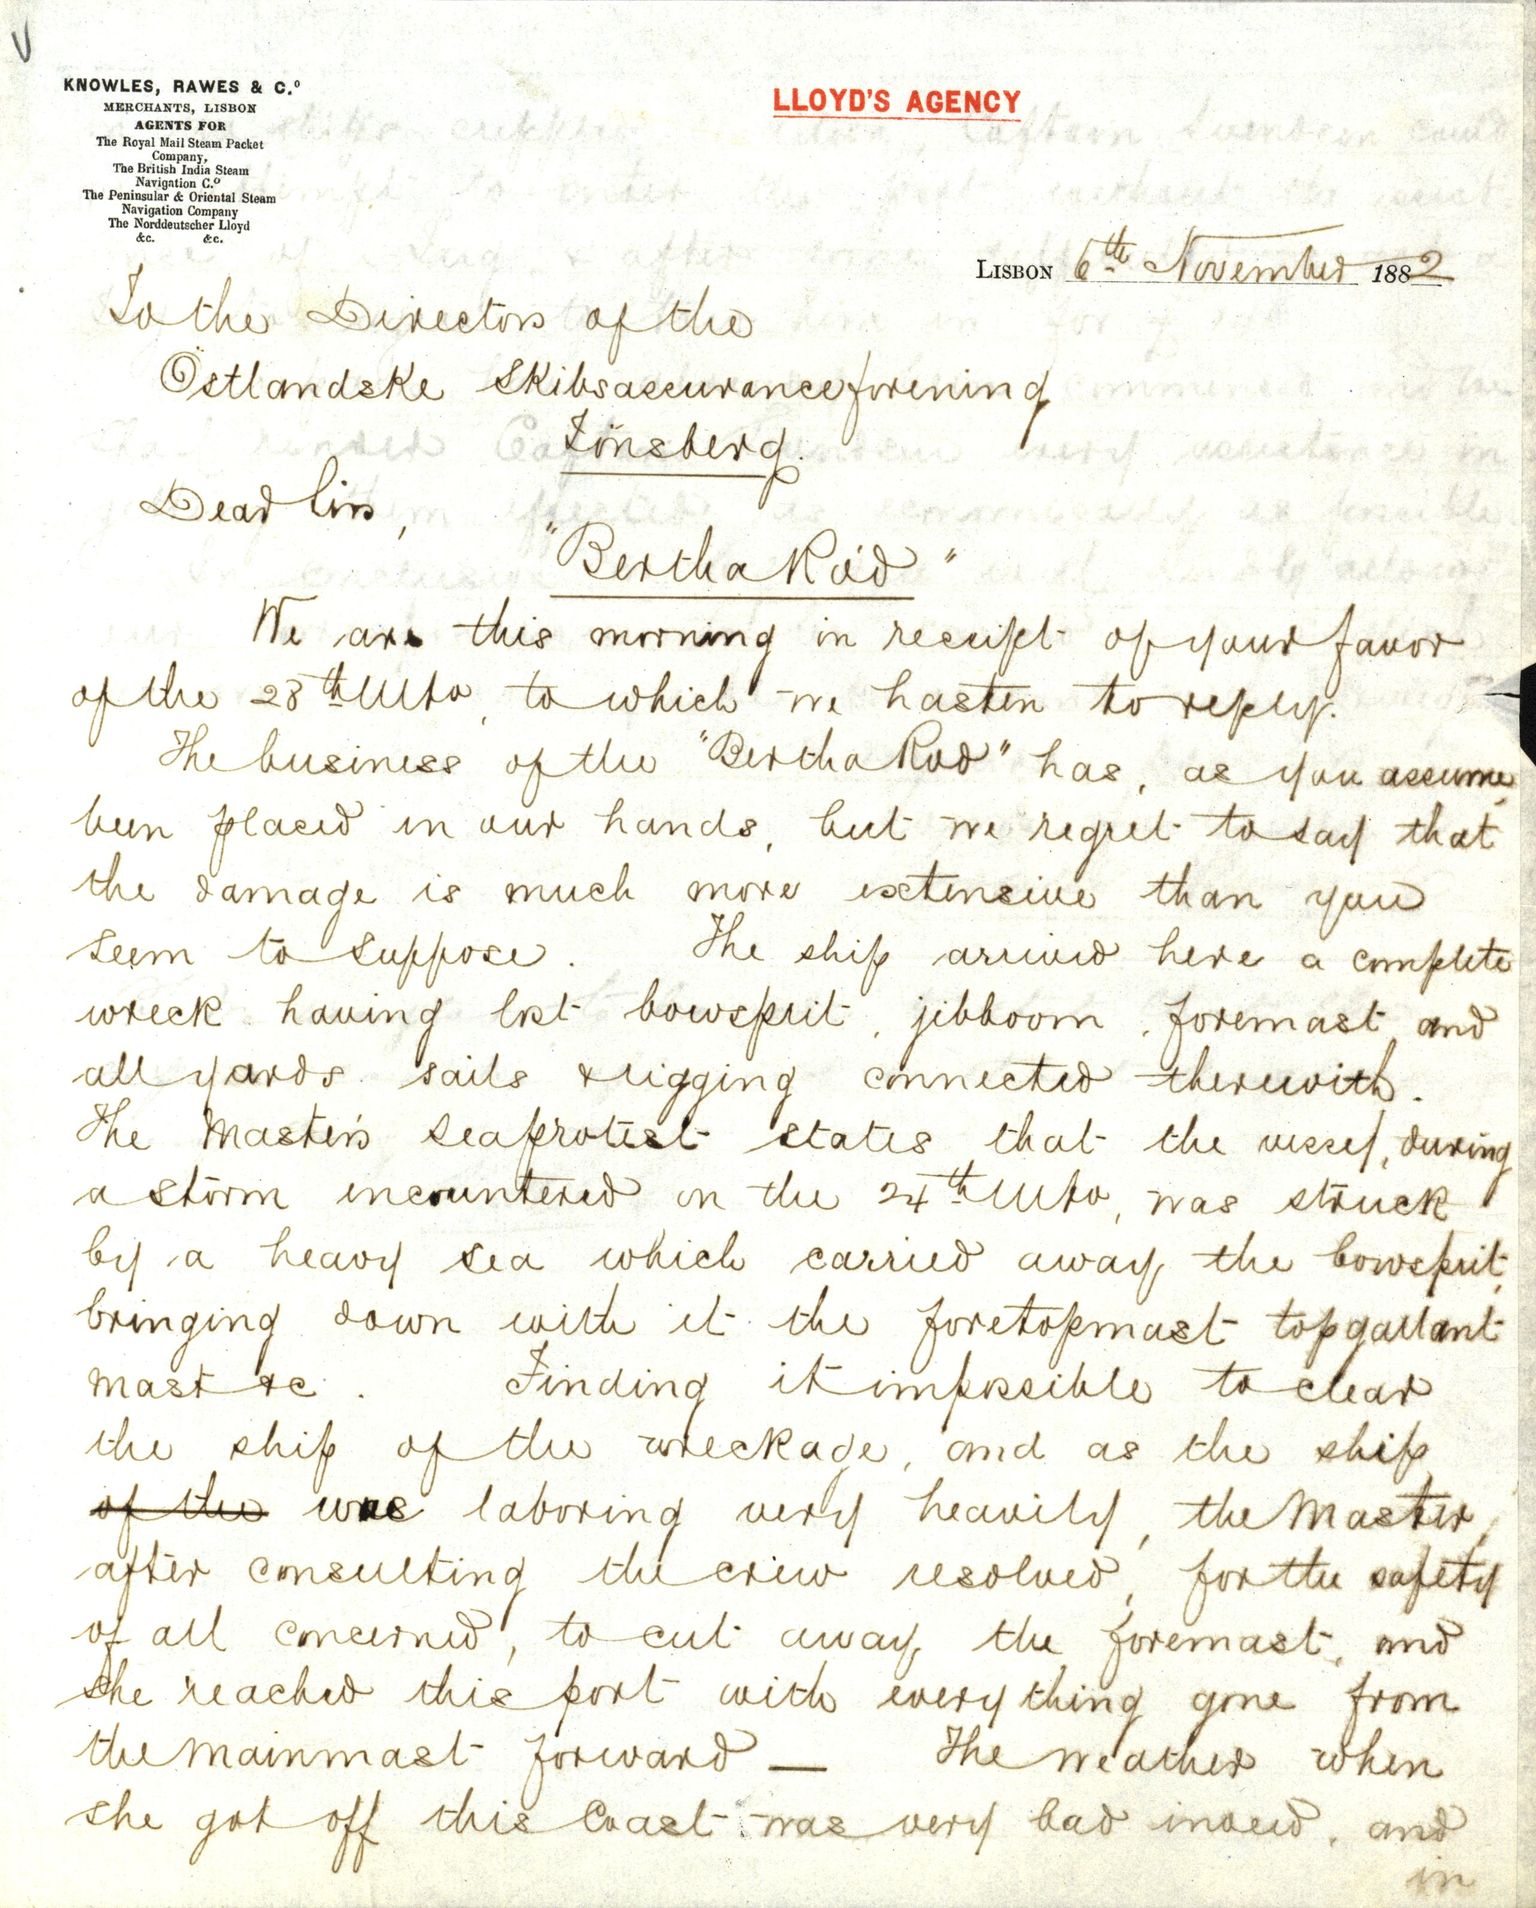 KNOWLES, RAWES & C.º
MERCHANTS, LISBON
AGENTS FOR
The Royal Mail Steam Packet
Company,
The British India Steam
Navigation C.º
The Peninsular & Oriental Steam
Navigation Company
The Norddeutscher Lloyd
&c. &c.
LLOYD'S AGENCY
LISBON 6th November 1882
To the Directors of the
Östlandske Skibsassuranceforening
Tönsberg.
Dear Sirs,
"Bertha Röd"
We are this morning in receipt of your favor
of the 28th Ulto, to which we hasten to reply.
The business of the "Bertha Rod" has, as you assume,
been placed in our hands, but we regret to say that
the damage is much more extensive than you
seem to suppose. The ship arrived here a complete
wreck having lost bowsprit, jibboom, foremast, and
all yards sails & rigging connected therewith.
The Master's seaprotest states that the vessel, during
a storm encountered on the 24th Ulto, was struck
by a heavy sea which carried away the bowsprit,
bringing down with it the foretopmast topgallant
mast &c. Finding it impossible to clear
the ship of the wreckage, and as the ship
of the was laboring very heavily, the Master,
after consulting the crew resolved, for the safety
of all concerned, to cut away the foremast, and
she reached this port with everything gone from
the mainmast forward — The weather when
she got off this Coast was very bad indeed, and
in